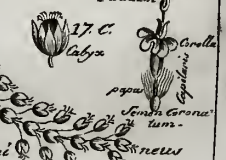 17. C.
Calyx
Corolla
Capilaris
papus
Semen Corona-
tum.
neus